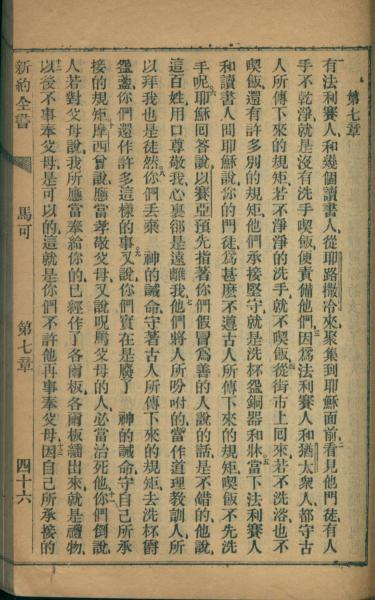 第七章
有法利賽人和幾個讀書人、從耶路撒冷來聚集到耶穌面前、看見他門徒有人
手不乾淨就是沒有洗手喫飯便責備他們因爲法利賽人和猶太衆人都守古
人所傳下來的規矩若不淨淨的洗手就不喫飯從街市上回來若不洗浴也不
喫飯還有許多別的規矩他們承接堅守就是洗杯盌銅器和牀當下法利賽人
和讀書人問耶穌說你的門徒爲甚麽不遵古人所傳下來的規矩喫飯不先洗
手呢耶穌回答說以賽亞預先指著你們假冒爲善的人說的話是不錯的他說
這百姓用口尊敬我心裏卻是遠離我他們將人所吩咐的當作道理教訓人所
以拜我也是徒然你們丟棄 神的誡命守著古人所傳下來的規矩去洗杯
盌盞你們還作許多這樣的事又說你們實在是廢了 神的誡命守自己所承
接的規矩摩西曾說應當孝敬父母又說咒罵父母的人必當治死他你們倒說
人若對父母說我所應當奉給你的已經作了各爾板各爾板譒出來就是禮物
以後不事奉父母是可以的這就是你們不許他再事奉父母因自己所承接的
新約全書
馬可
第七章
四十六